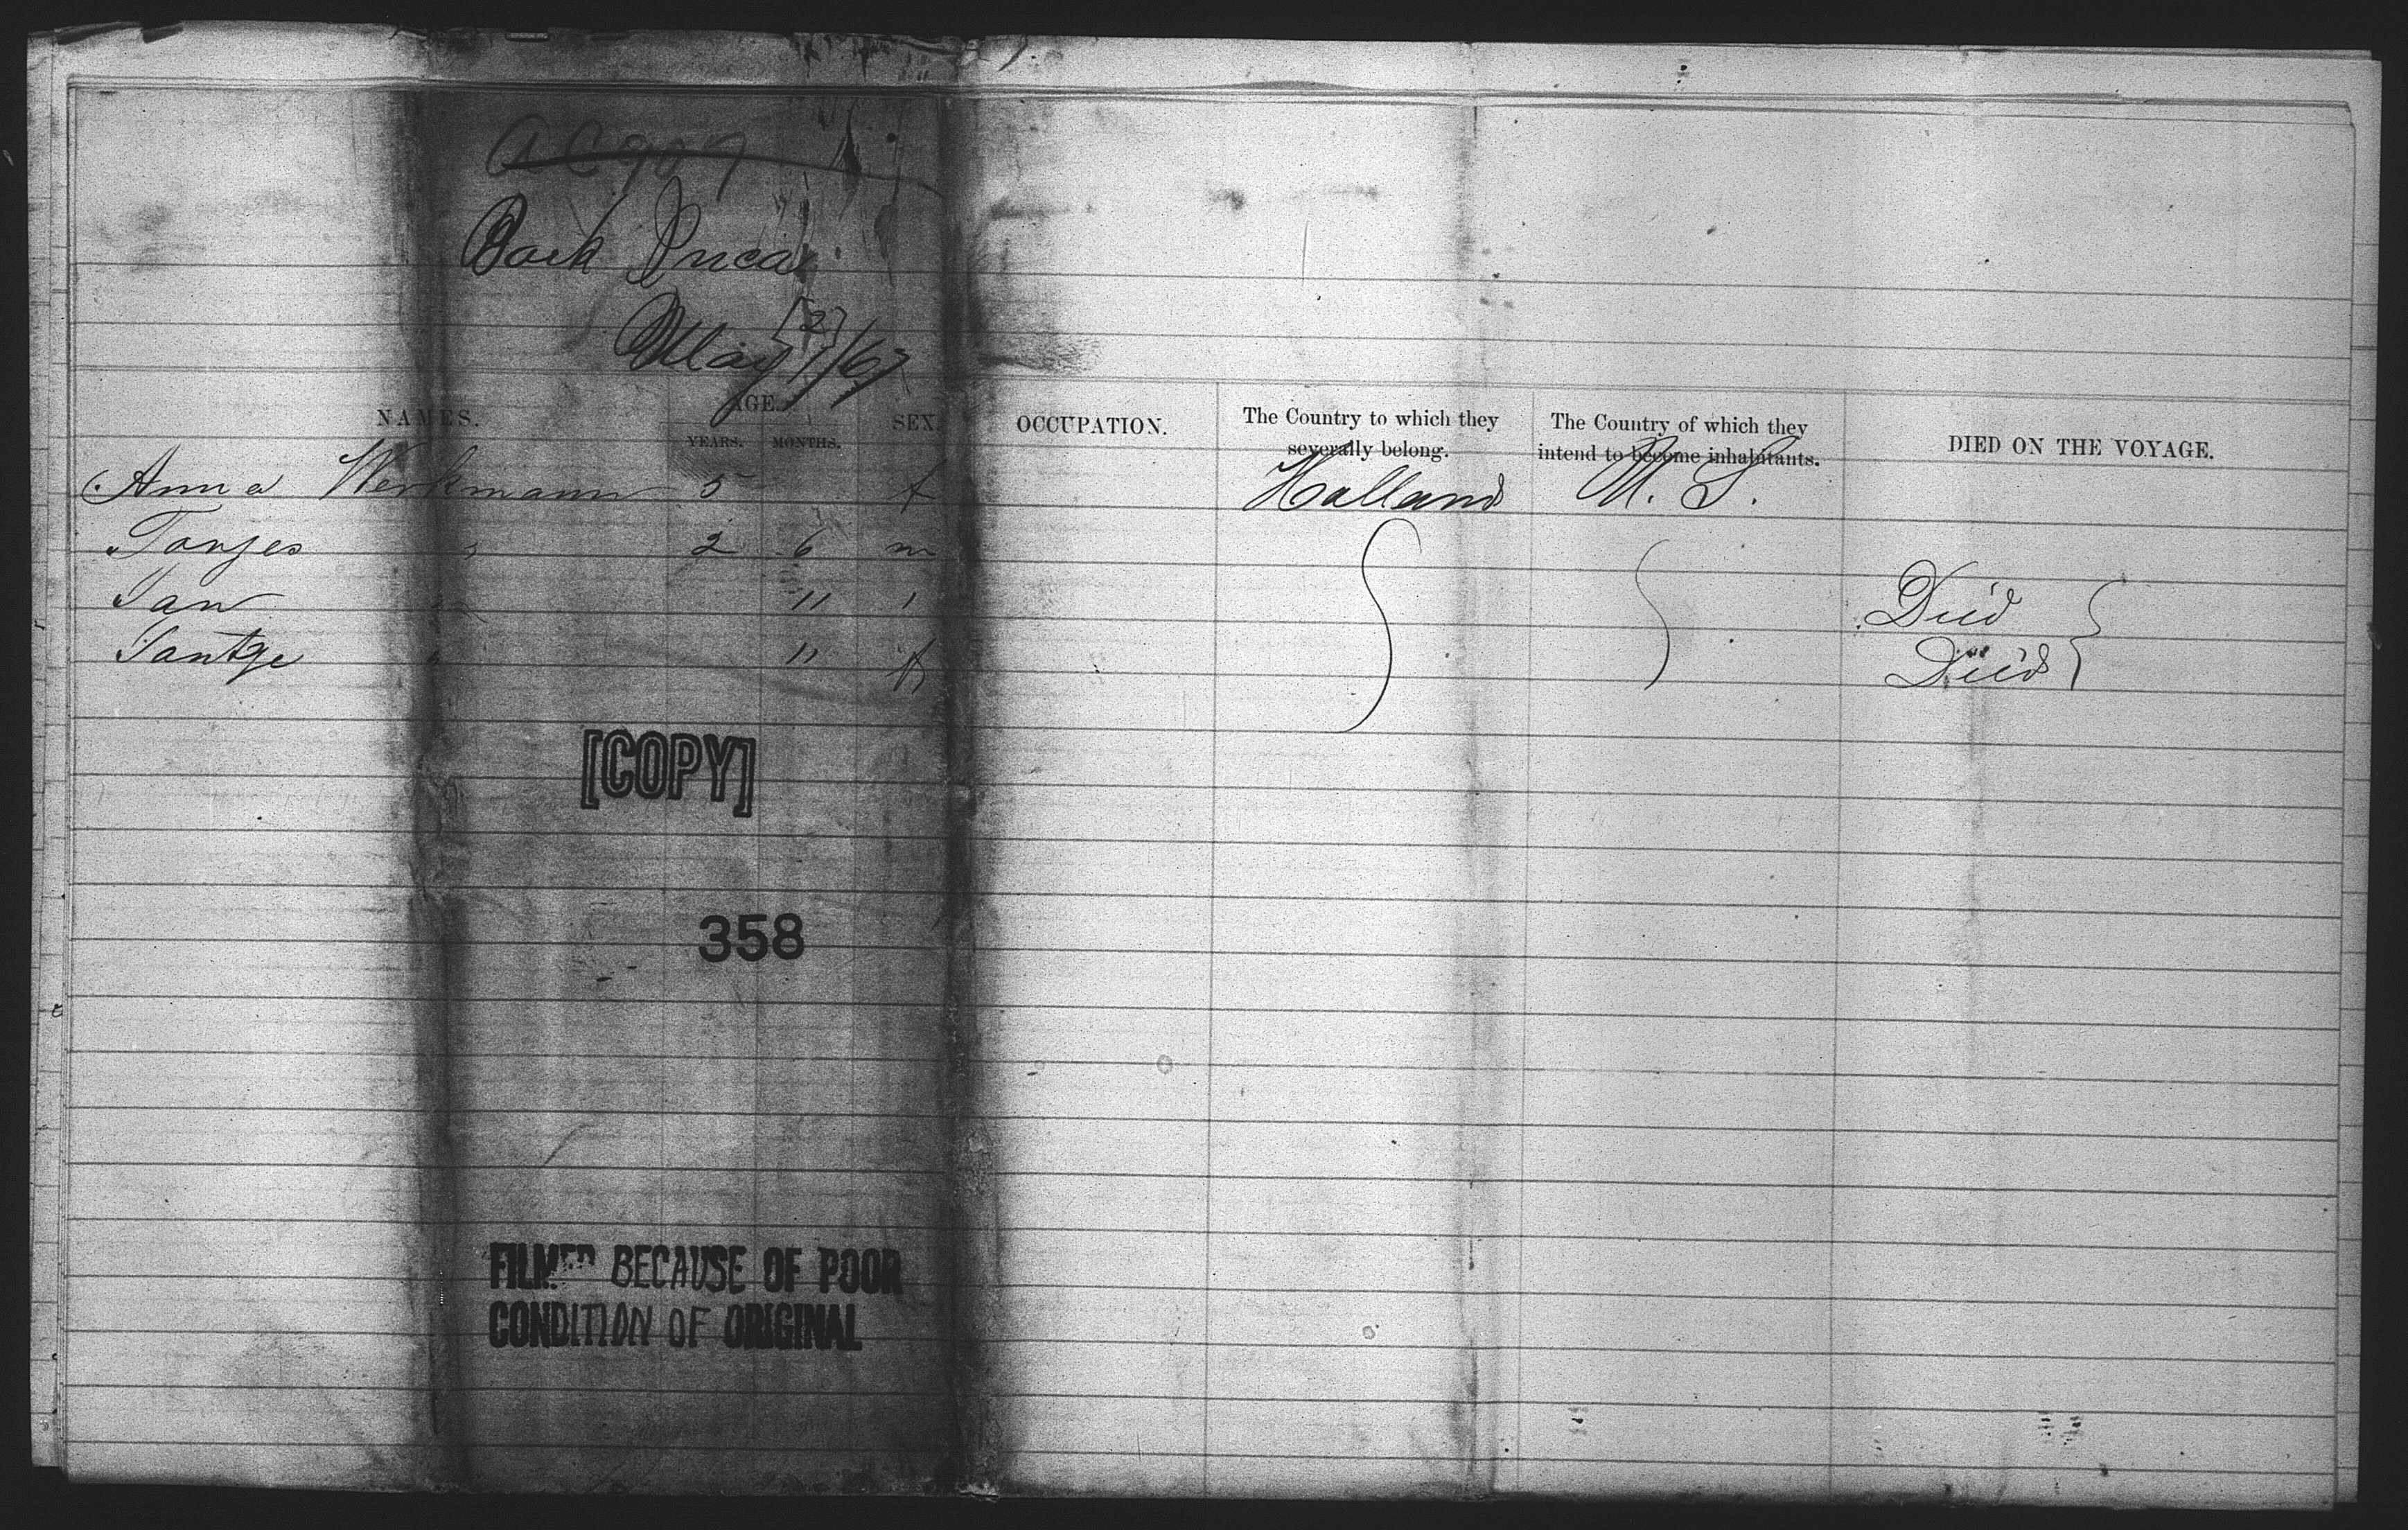 Bark Inca
[2]
May 1/67
NAMES. AGE. YEARS. MONTHS. SEX. OCCUPATION. The Country to which they severally belong. The Country of which they intend to become inhabitants. DIED ON THE VOYAGE.
Anna Werkmann 5 f Holland U. S.
Tonjes " 2 6 m
Jan " 11 " Died
Jantje " 11 f Died
[COPY]
358
FILMED BECAUSE OF POOR
CONDITION OF ORIGINAL